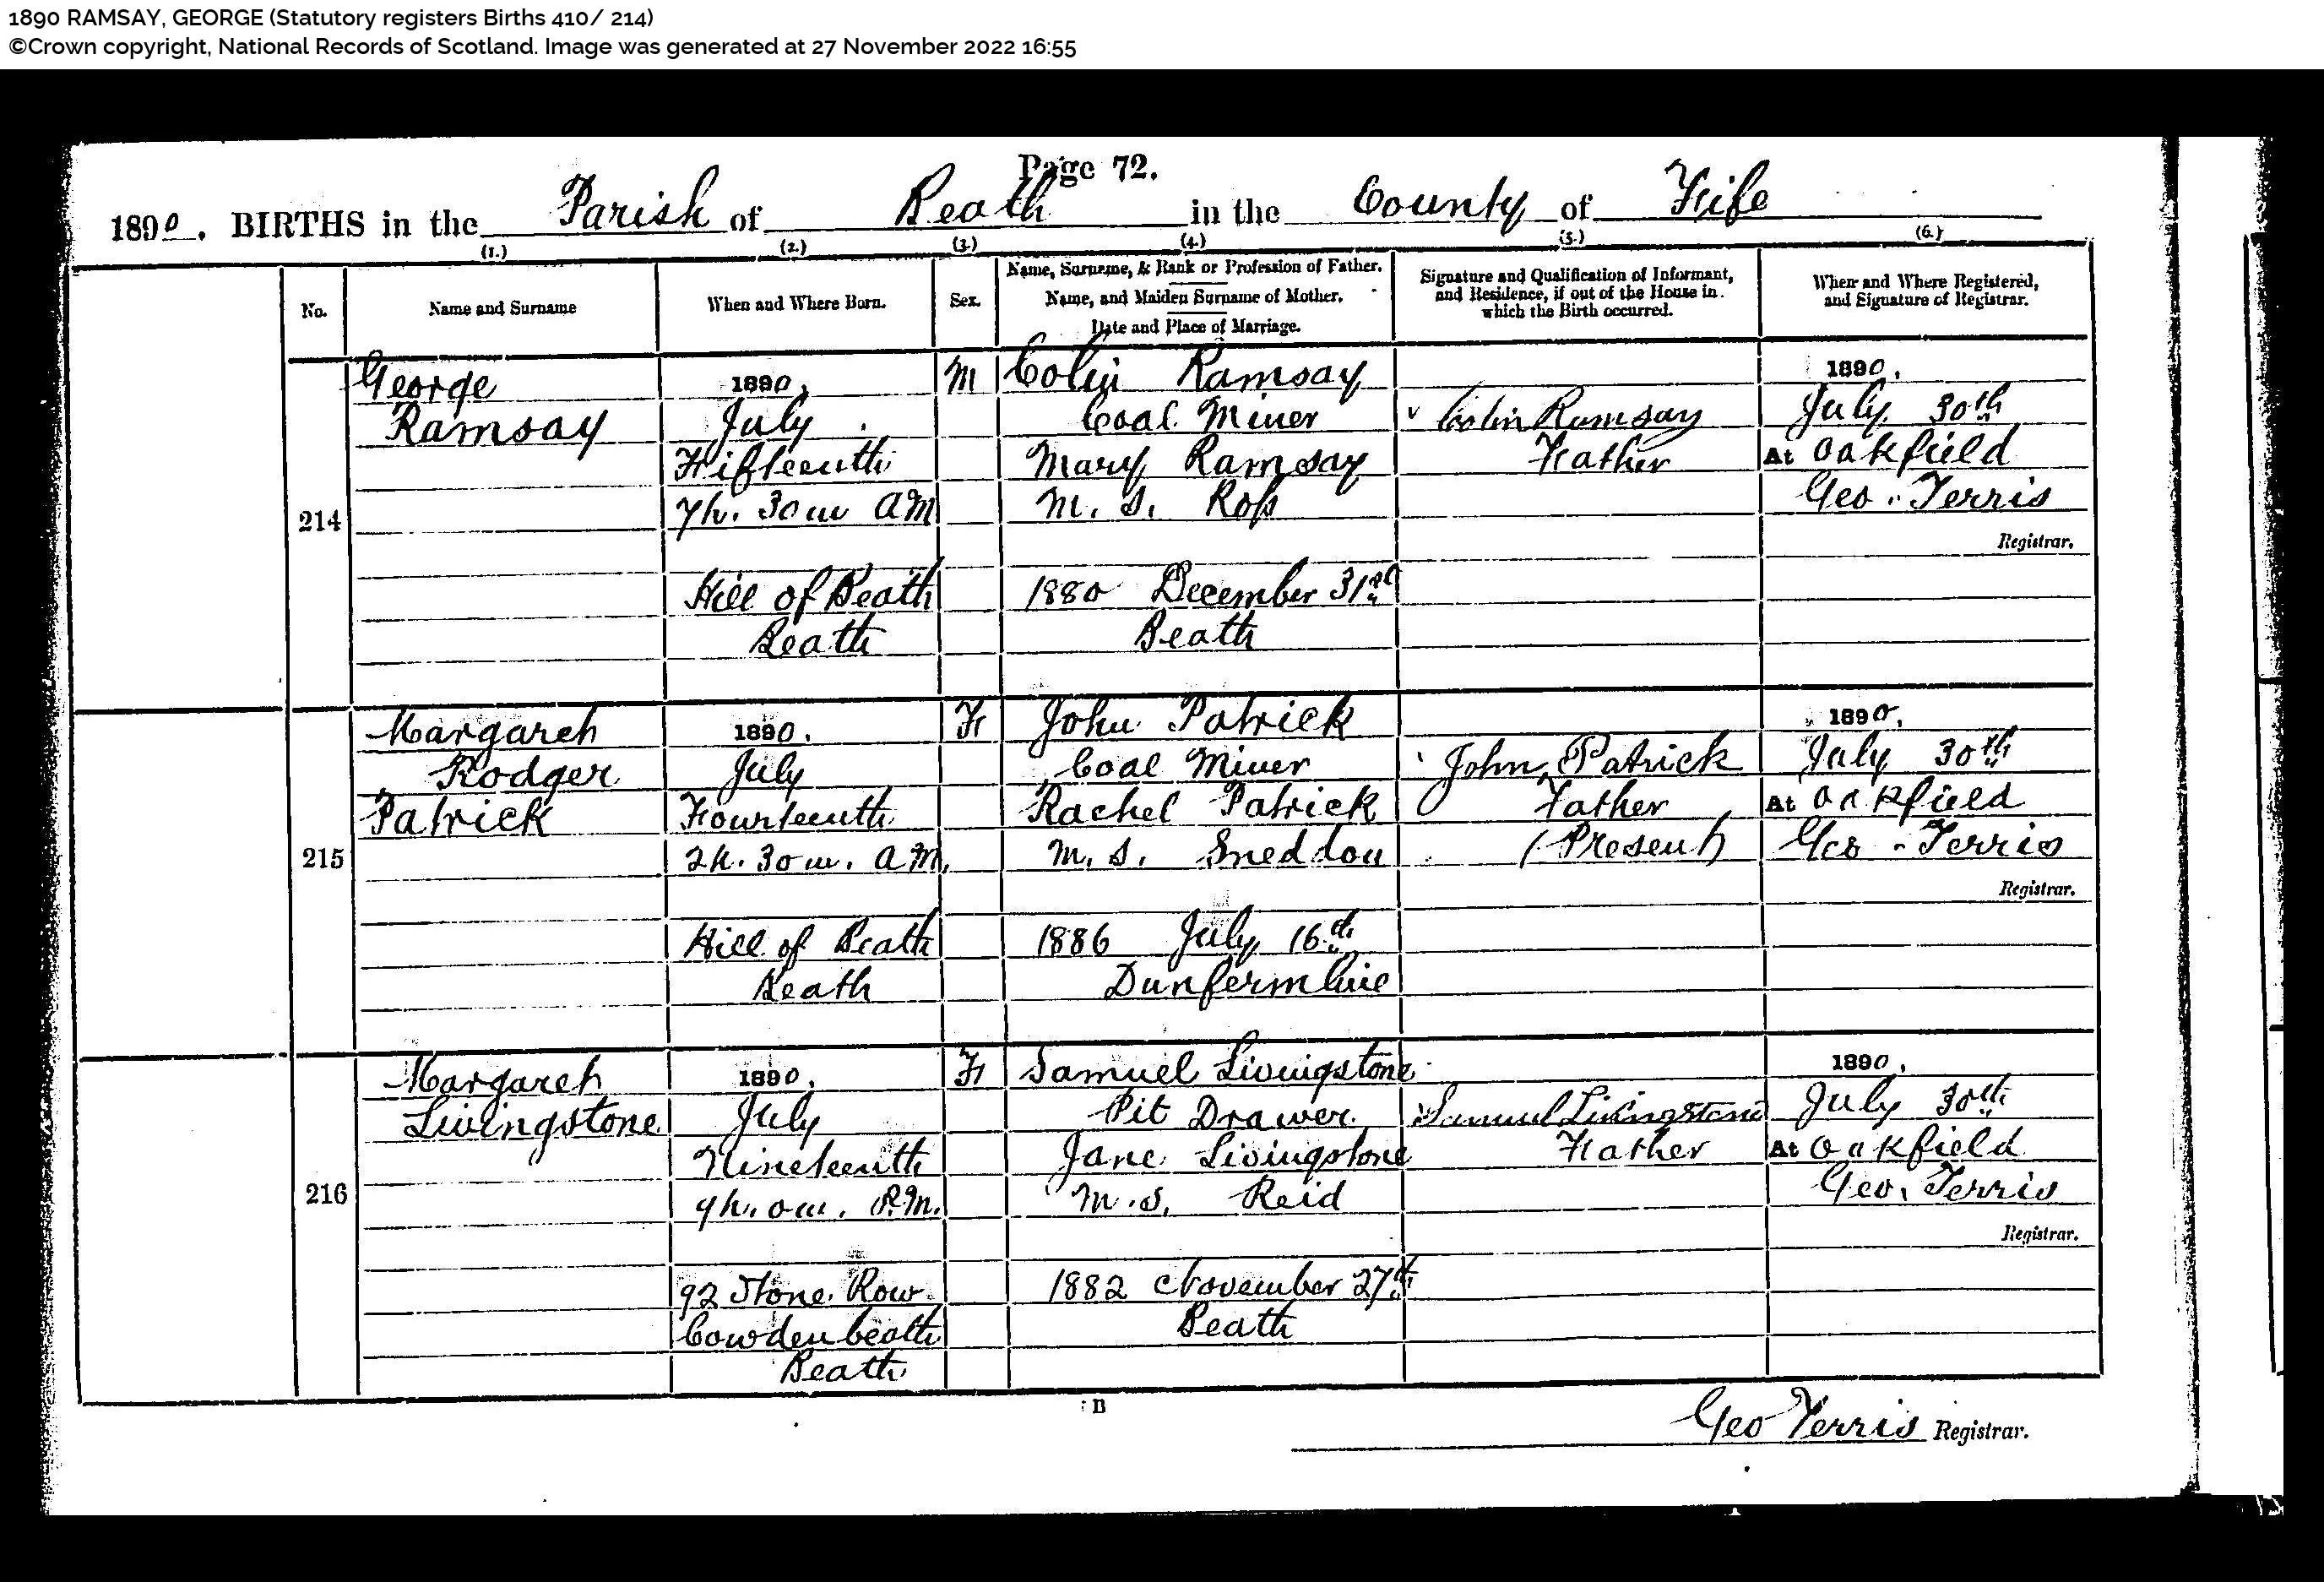 1890 RAMSAY, GEORGE (Statutory registers Births 410/ 214)
©Crown copyright, National Records of Scotland. Image was generated at 27 November 2022 16:55
Page 72.
1890. BIRTHS in the Parish of Beath in the County of Fife
(1.) (2.) (3.) (4.) (5.) (6.)
No.
Name and Surname
When and Where Born.
Sex.
Name, Surname, & Rank or Profession of Father.
Name, and Maiden Surname of Mother.
Date and Place of Marriage.
Signature and Qualification of Informant,
and Residence, if out of the House in
which the Birth occurred.
When and Where Registered,
and Signature of Registrar.
214
George
Ramsay
1890.
July
Fifteenth
7h. 30m AM
Hill of Beath
Beath
M
Colin Ramsay
Coal Miner
Mary Ramsay
M. S. Ross
1880 December 31st
Beath
Colin Ramsay
Father
1890.
July 30th
At Oakfield
Geo. Terris
Registrar.
215
Margaret
Rodger
Patrick
1890.
July
Fourteenth
2h. 30m. AM.
Hill of Beath
Beath
F
John Patrick
Coal Miner
Rachel Patrick
M. S. Sneddon
1886 July 16th
Dunfermline
John Patrick
Father
(Present)
1890.
July 30th
At Oakfield
Geo. Terris
Registrar.
216
Margaret
Livingstone
1890.
July
Nineteenth
9h. 0m. P.M.
92 Stone Row
Cowdenbeath
Beath
F
Samuel Livingstone
Pit Drawer
Jane Livingstone
M. S. Reid
1882 November 27th
Beath
Samuel Livingstone
Father
1890.
July 30th
At Oakfield
Geo. Terris
Registrar.
B
Geo Terris Registrar.